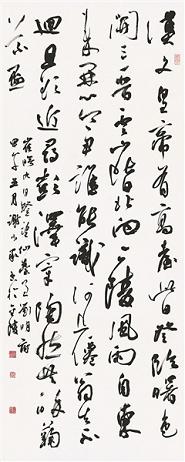 漢文皇帝有高臺此日登臨曙色
開三晉雲山皆北向二陵風雨自東
來關門令尹誰能識河上僊翁去不
迴且欲近尋彭澤宰陶然共醉菊
花盃
崔曙九日登望仙臺呈劉明府
甲午五月謝小